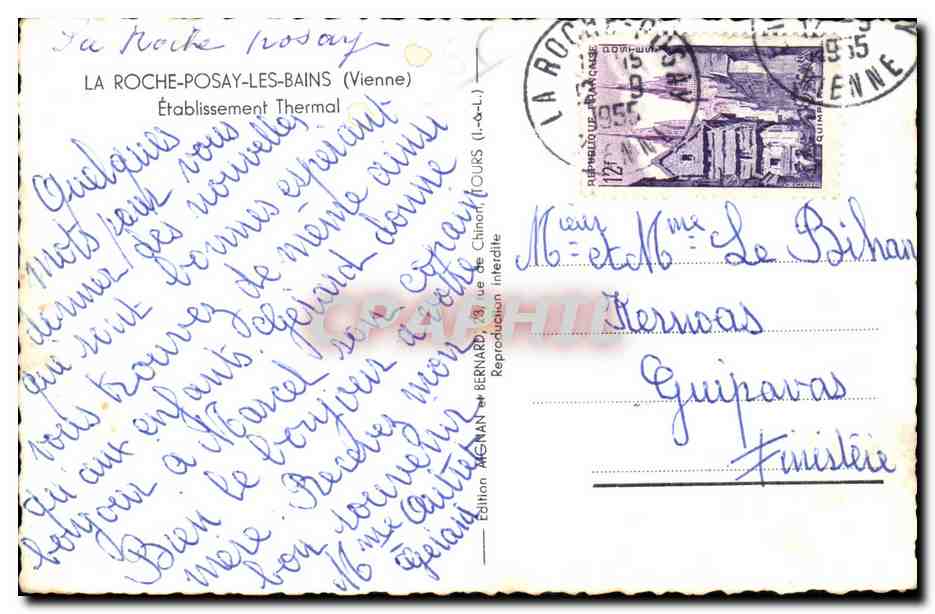 La Roche Posay
LA ROCHE-POSAY-LES-BAINS (Vienne)
Établissement Thermal
Quelques
mots pour vous
donner des nouvelles
qui sont bonnes espérant
vous trouvez de même ainsi
qui aux enfants. Gérard donne
bonjour à Marcel son copain
Bien le bonjour à votre
mère. Recevez mon
bon souvenir
Mme
Gérard
Edition AIGNAN et BERNARD, 23, rue de Chinon, TOURS (I.-&-L.)
Reproduction interdite
LA ROCHE-POSAY
1955
1955
VIENNE
REPUBLIQUE FRANÇAISE
POSTES
12f
QUIMPER
Mr et Mme Le Bihan
Kernoas
Guipavas
Finistère
CPAPHIL